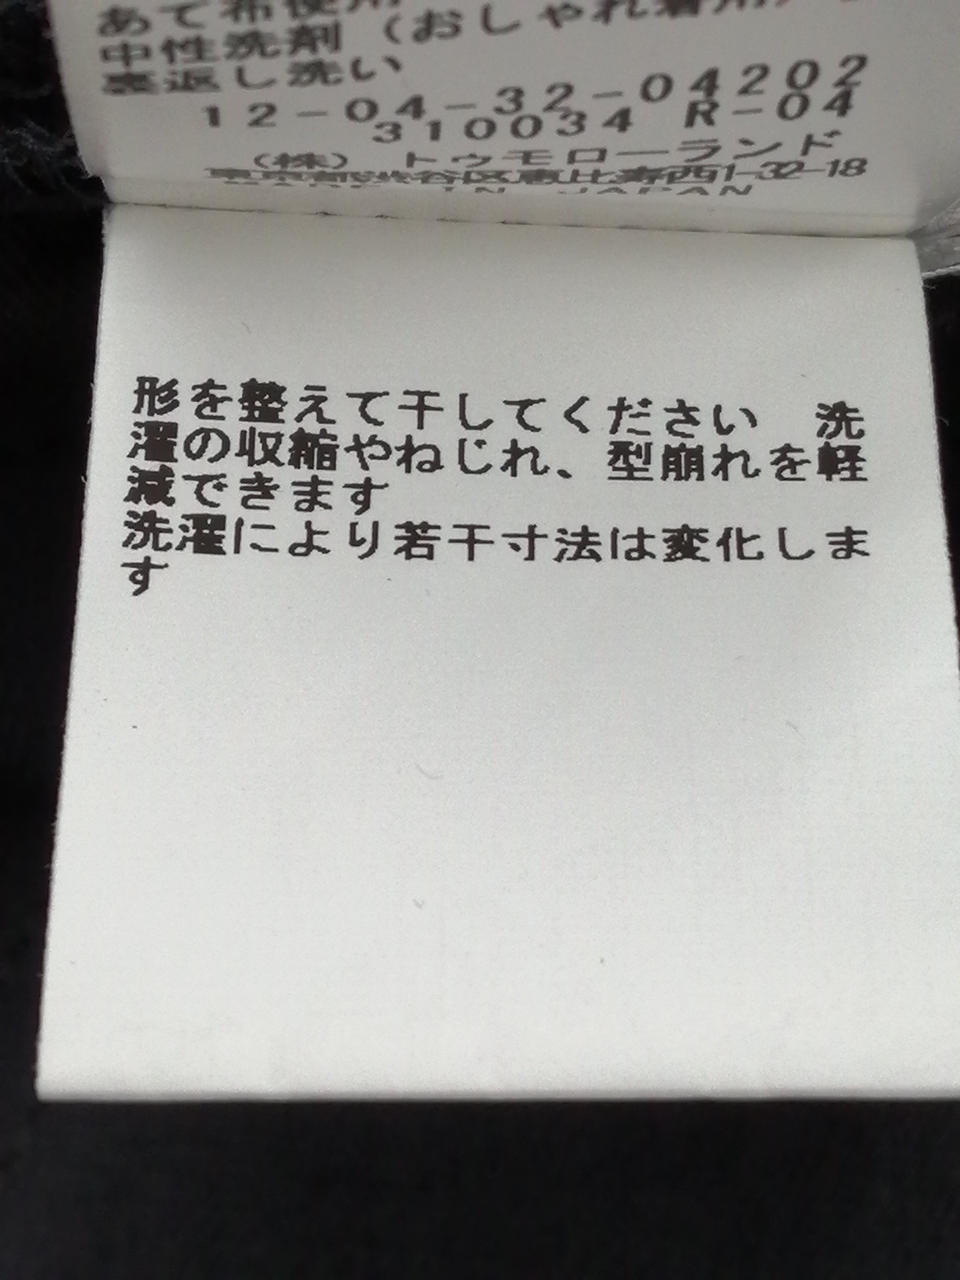 あて布使用
中性洗剤（おしゃれ着用）
裏返し洗い
12-04-32-04202
310034 R-04
（株） トゥモローランド
東京都渋谷区恵比寿西1-32-18
MADE IN JAPAN
形を整えて干してください 洗
濯の収縮やねじれ、型崩れを軽
減できます
洗濯により若干寸法は変化しま
す